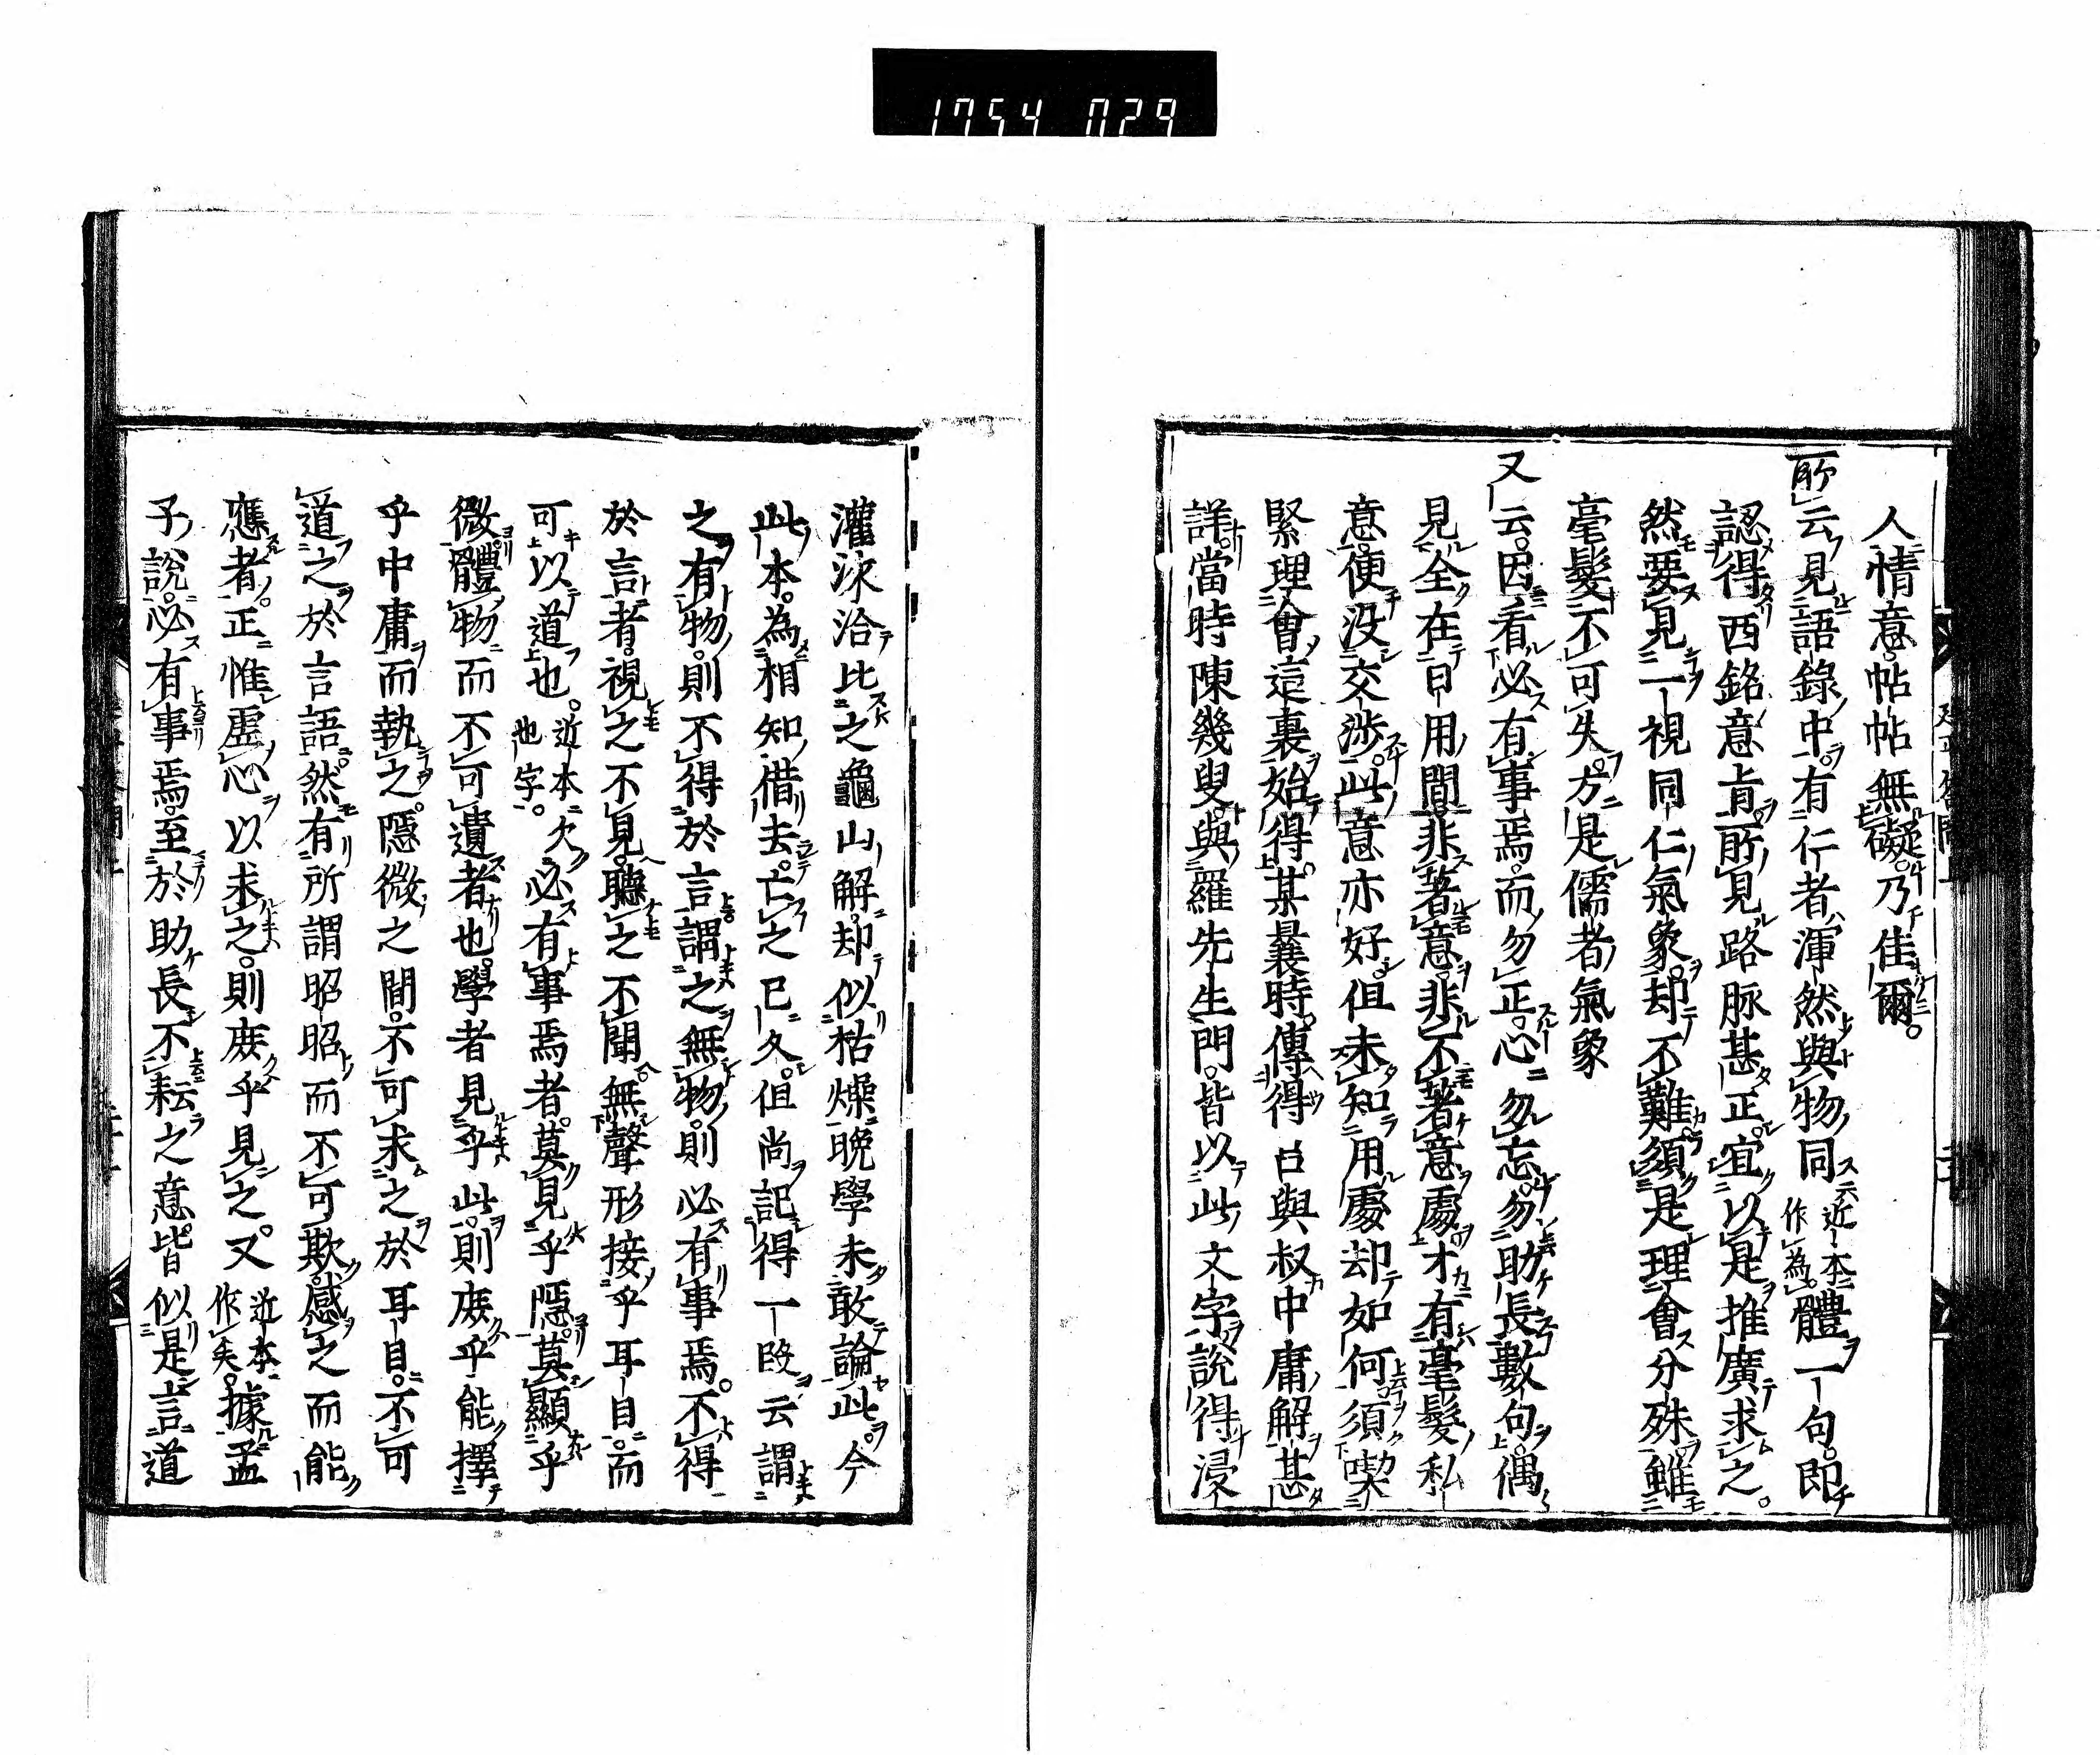 1754 029
人情意。帖帖無礙。乃佳爾。
所云見語錄中。有仁者渾然與物同近本作為。體一句。即
認得西銘意旨。所見路脉甚正。宜以是推廣求之。
然要見一視同仁氣象。却不難。須是理會分殊。雖
毫髮不可失。方是儒者氣象
又云。因看必有事焉。而勿正。心勿忘。勿助長數句。偶
見全在日用間。非著意。非不著意處。才有毫髮私
意。便没交渉。此意亦好。但未知用處却如何。須喫
緊理會這裏。始得。某曩時。傳得呂與叔中庸解甚
詳。當時陳幾叟。與羅先生門。皆以此文字說得浸
灌浹洽。比之龜山解。却似枯燥。晚學未敢論此。今
此本。為相知借去。亡之已久。但尚記得一段。云謂
之有物。則不得於言。謂之無物。則必有事焉。不得
於言者。視之不見。聽之不聞。無聲形接乎耳目。而
可以道也。近本欠也字。必有事焉者。莫見乎隱。莫顯乎
微。體物而不可遺者也。學者見乎此。則庶乎能擇
乎中庸而執之。隱微之間。不可求之於耳目。不可
道之於言語。然有所謂昭昭而不可欺。感之而能
應者。正惟虛心以求之。則庶乎見之。又近本作矣。據孟
子說。必有事焉。至於助長不耘之意。皆似是言道